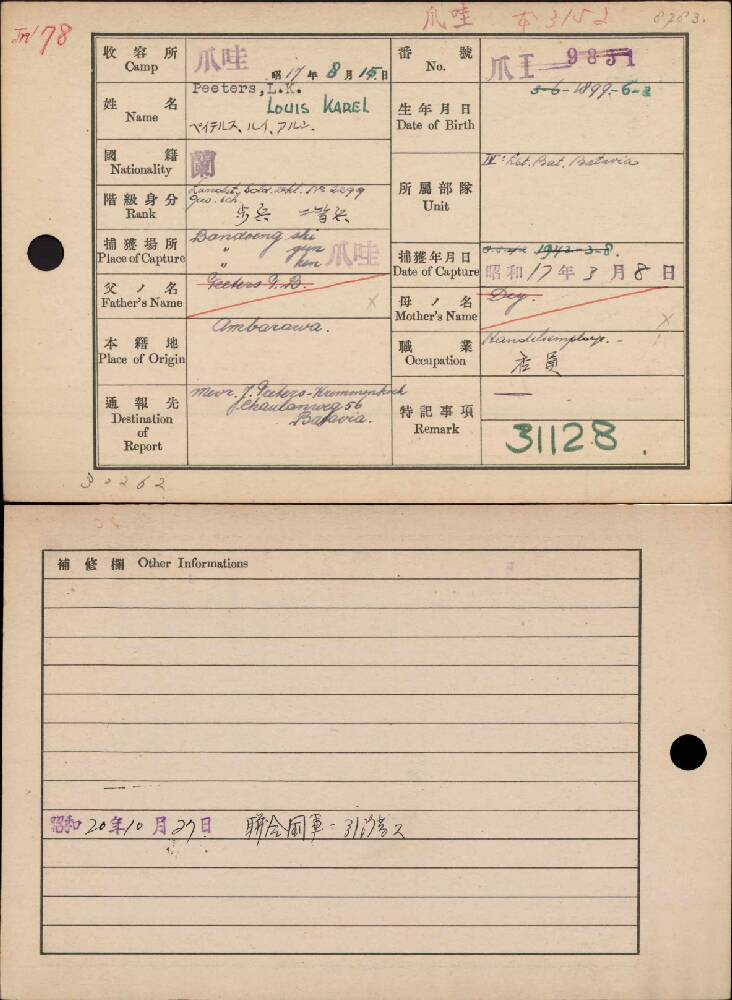 爪哇
本3152
8783.
178
收容所
Camp
爪哇
昭17年8月15日
番號
No.
爪 I 9851
姓名
Name
Peeters, L.K.
LOUIS KAREL
ペイテルス、ルイ、アルン.
生年月日
Date of Birth
5-6-1899-6-5
國籍
Nationality
蘭
所屬部隊
Unit
Lst. Bat. Batavia
階級身分
Rank
Landst. Sold. No 2299
歩兵 二等兵
捕獲場所
Place of Capture
Bandoeng shi
〃 gun
〃 ken
爪哇
捕獲年月日
Date of Capture
1942-3-8.
昭和17年3月8日
父ノ名
Father's Name
Peeters
×
母ノ名
Mother's Name
Deg.
×
本籍地
Place of Origin
Ambarawa.
職業
Occupation
Handelsemploye.-
店員
通報先
Destination
of
Report
Mevr. J. Peeters-
56
Batavia.
特記事項
Remark
—
31128.
30262
補修欄 Other Informations
昭和20年10月27日 聯合国軍ニ引渡ス